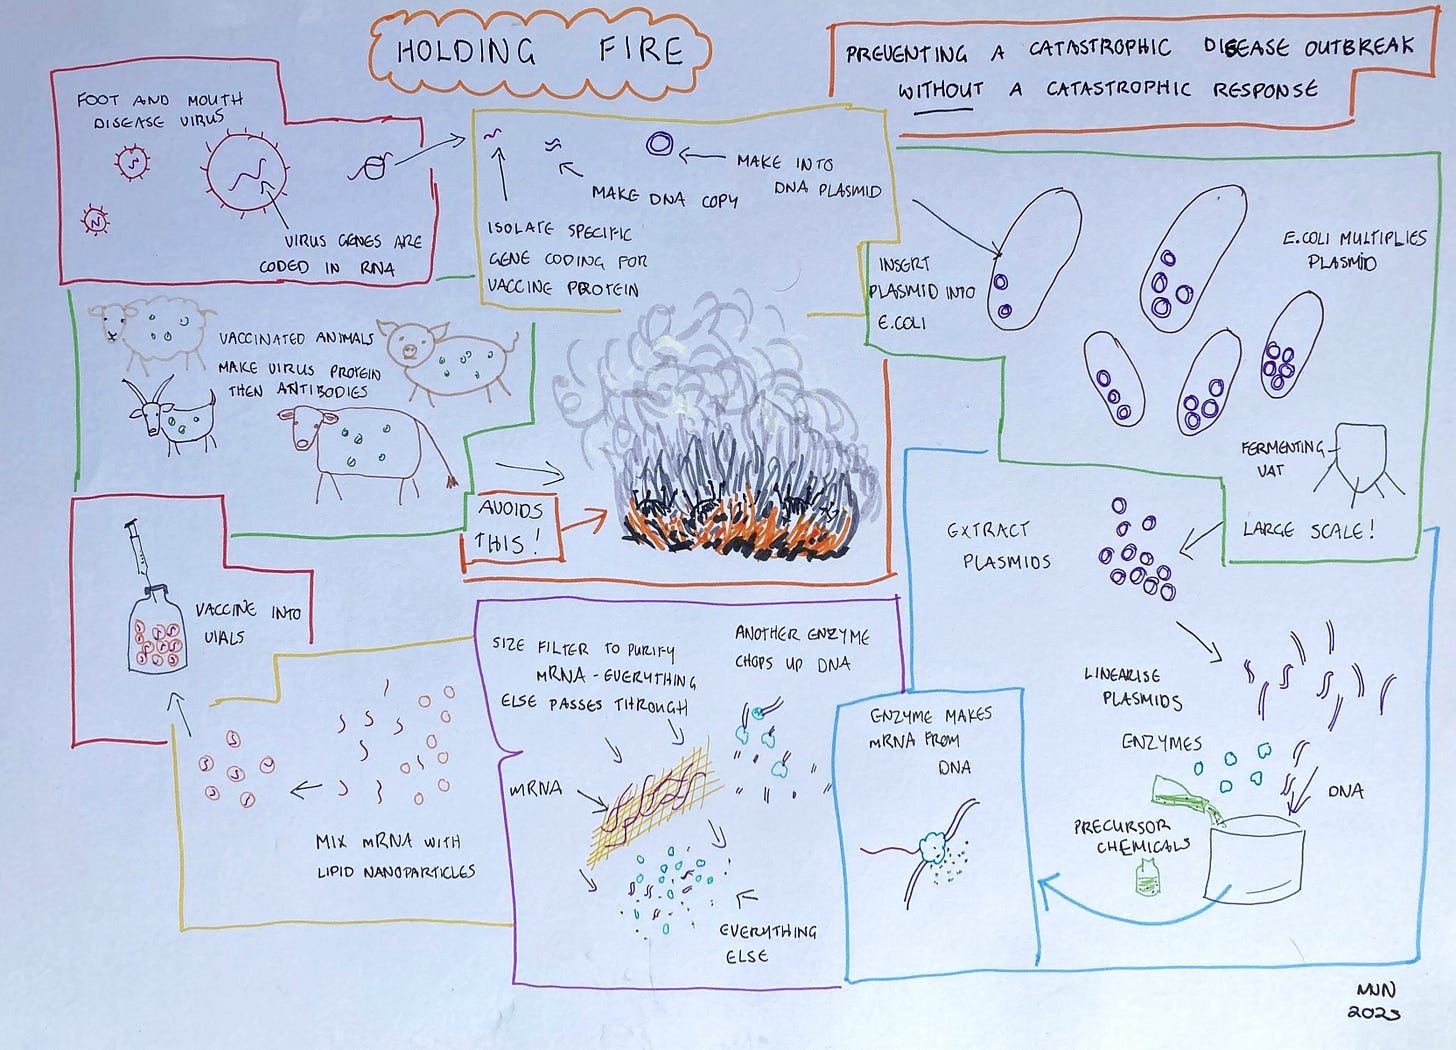 HOLDING FIRE
PREVENTING A CATASTROPHIC DISEASE OUTBREAK
WITHOUT A CATASTROPHIC RESPONSE
FOOT AND MOUTH
DISEASE VIRUS
VIRUS GENES ARE
CODED IN RNA
ISOLATE SPECIFIC
GENE CODING FOR
VACCINE PROTEIN
MAKE DNA COPY
MAKE INTO
DNA PLASMID
INSERT
PLASMID INTO
E.COLI
E.COLI MULTIPLIES
PLASMID
FERMENTING
VAT
LARGE SCALE!
EXTRACT
PLASMIDS
LINEARISE
PLASMIDS
ENZYMES
DNA
PRECURSOR
CHEMICALS
ENZYME MAKES
mRNA FROM
DNA
ANOTHER ENZYME
CHOPS UP DNA
SIZE FILTER TO PURIFY
mRNA - EVERYTHING
ELSE PASSES THROUGH
mRNA
EVERYTHING
ELSE
MIX mRNA WITH
LIPID NANOPARTICLES
VACCINE INTO
VIALS
VACCINATED ANIMALS
MAKE VIRUS PROTEIN
THEN ANTIBODIES
AVOIDS
THIS!
MJN
2023